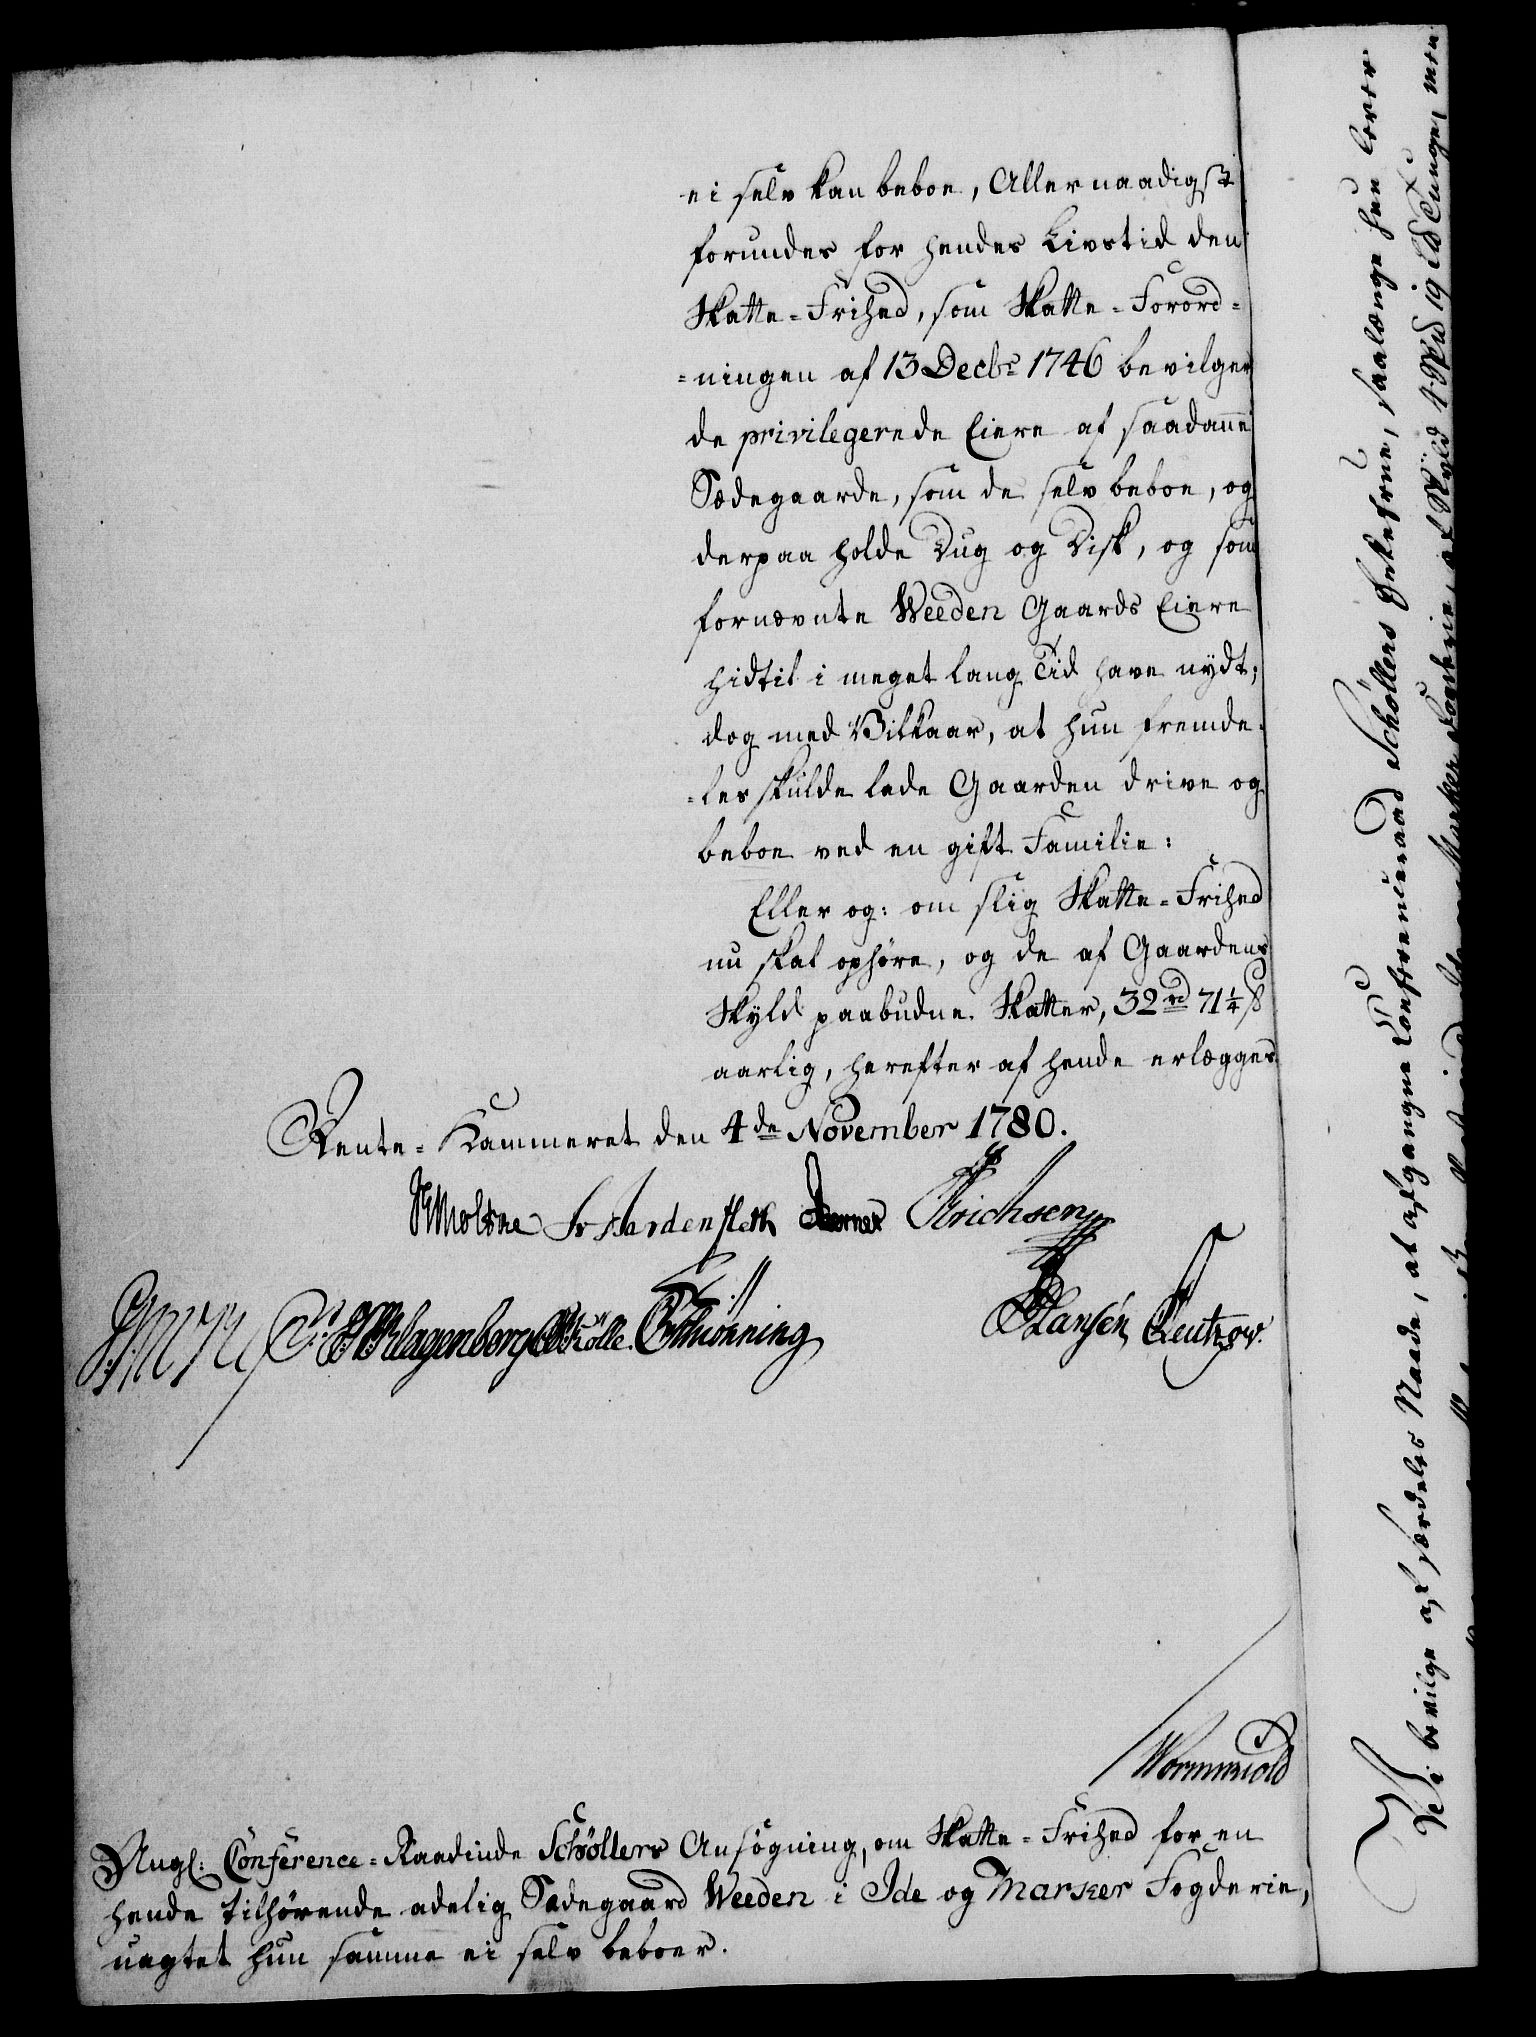 ei selv kan beboe, Allernaadigst
forundes for hendes Livstid den
Skatte-Frihed, som Skatte-Forord-
-ningen af 13 Decbr 1746 bevilger
de privilegerede Eiere af saadanne
Sædegaarde, som de selv beboe, og
derpaa holde Dug og Disk, og som
fornævnte Weeden Gaards Eiere
hidtil i meget lang Tid have nydt;
dog med Vilkaar, at hun fremde-
-les skulde lade Gaarden drive og
beboe ved en gift Familie:
Eller og: om slig Skatte-Frihed
nu skal ophøre, og de af Gaardens
Skyld paabudne Skatter, 32 rd 71 1/4 ß
aarlig, herefter af hende erlægges.
Rente-Kammeret den 4de November 1780.
Moltke Hardenfleth Erichsen
Klagenberg Kölle Schiønning Hansen Leutzow.
Wormskiold
Angl: Conference-Raadinde Schøllers Ansøgning, om Skatte-Frihed for en
hende tilhørende adelig Sædegaard Weeden i Ide og Marker Fogderie,
uagtet hun samme ei selv beboer.
Vi bevilge af særdeles Naade, at afgangne Conferenceraad Schøllers Enkefrue, saalænge hun lever
Marker Fogderie, af Skyld 4 Skpd 19 Lb Tunge, men